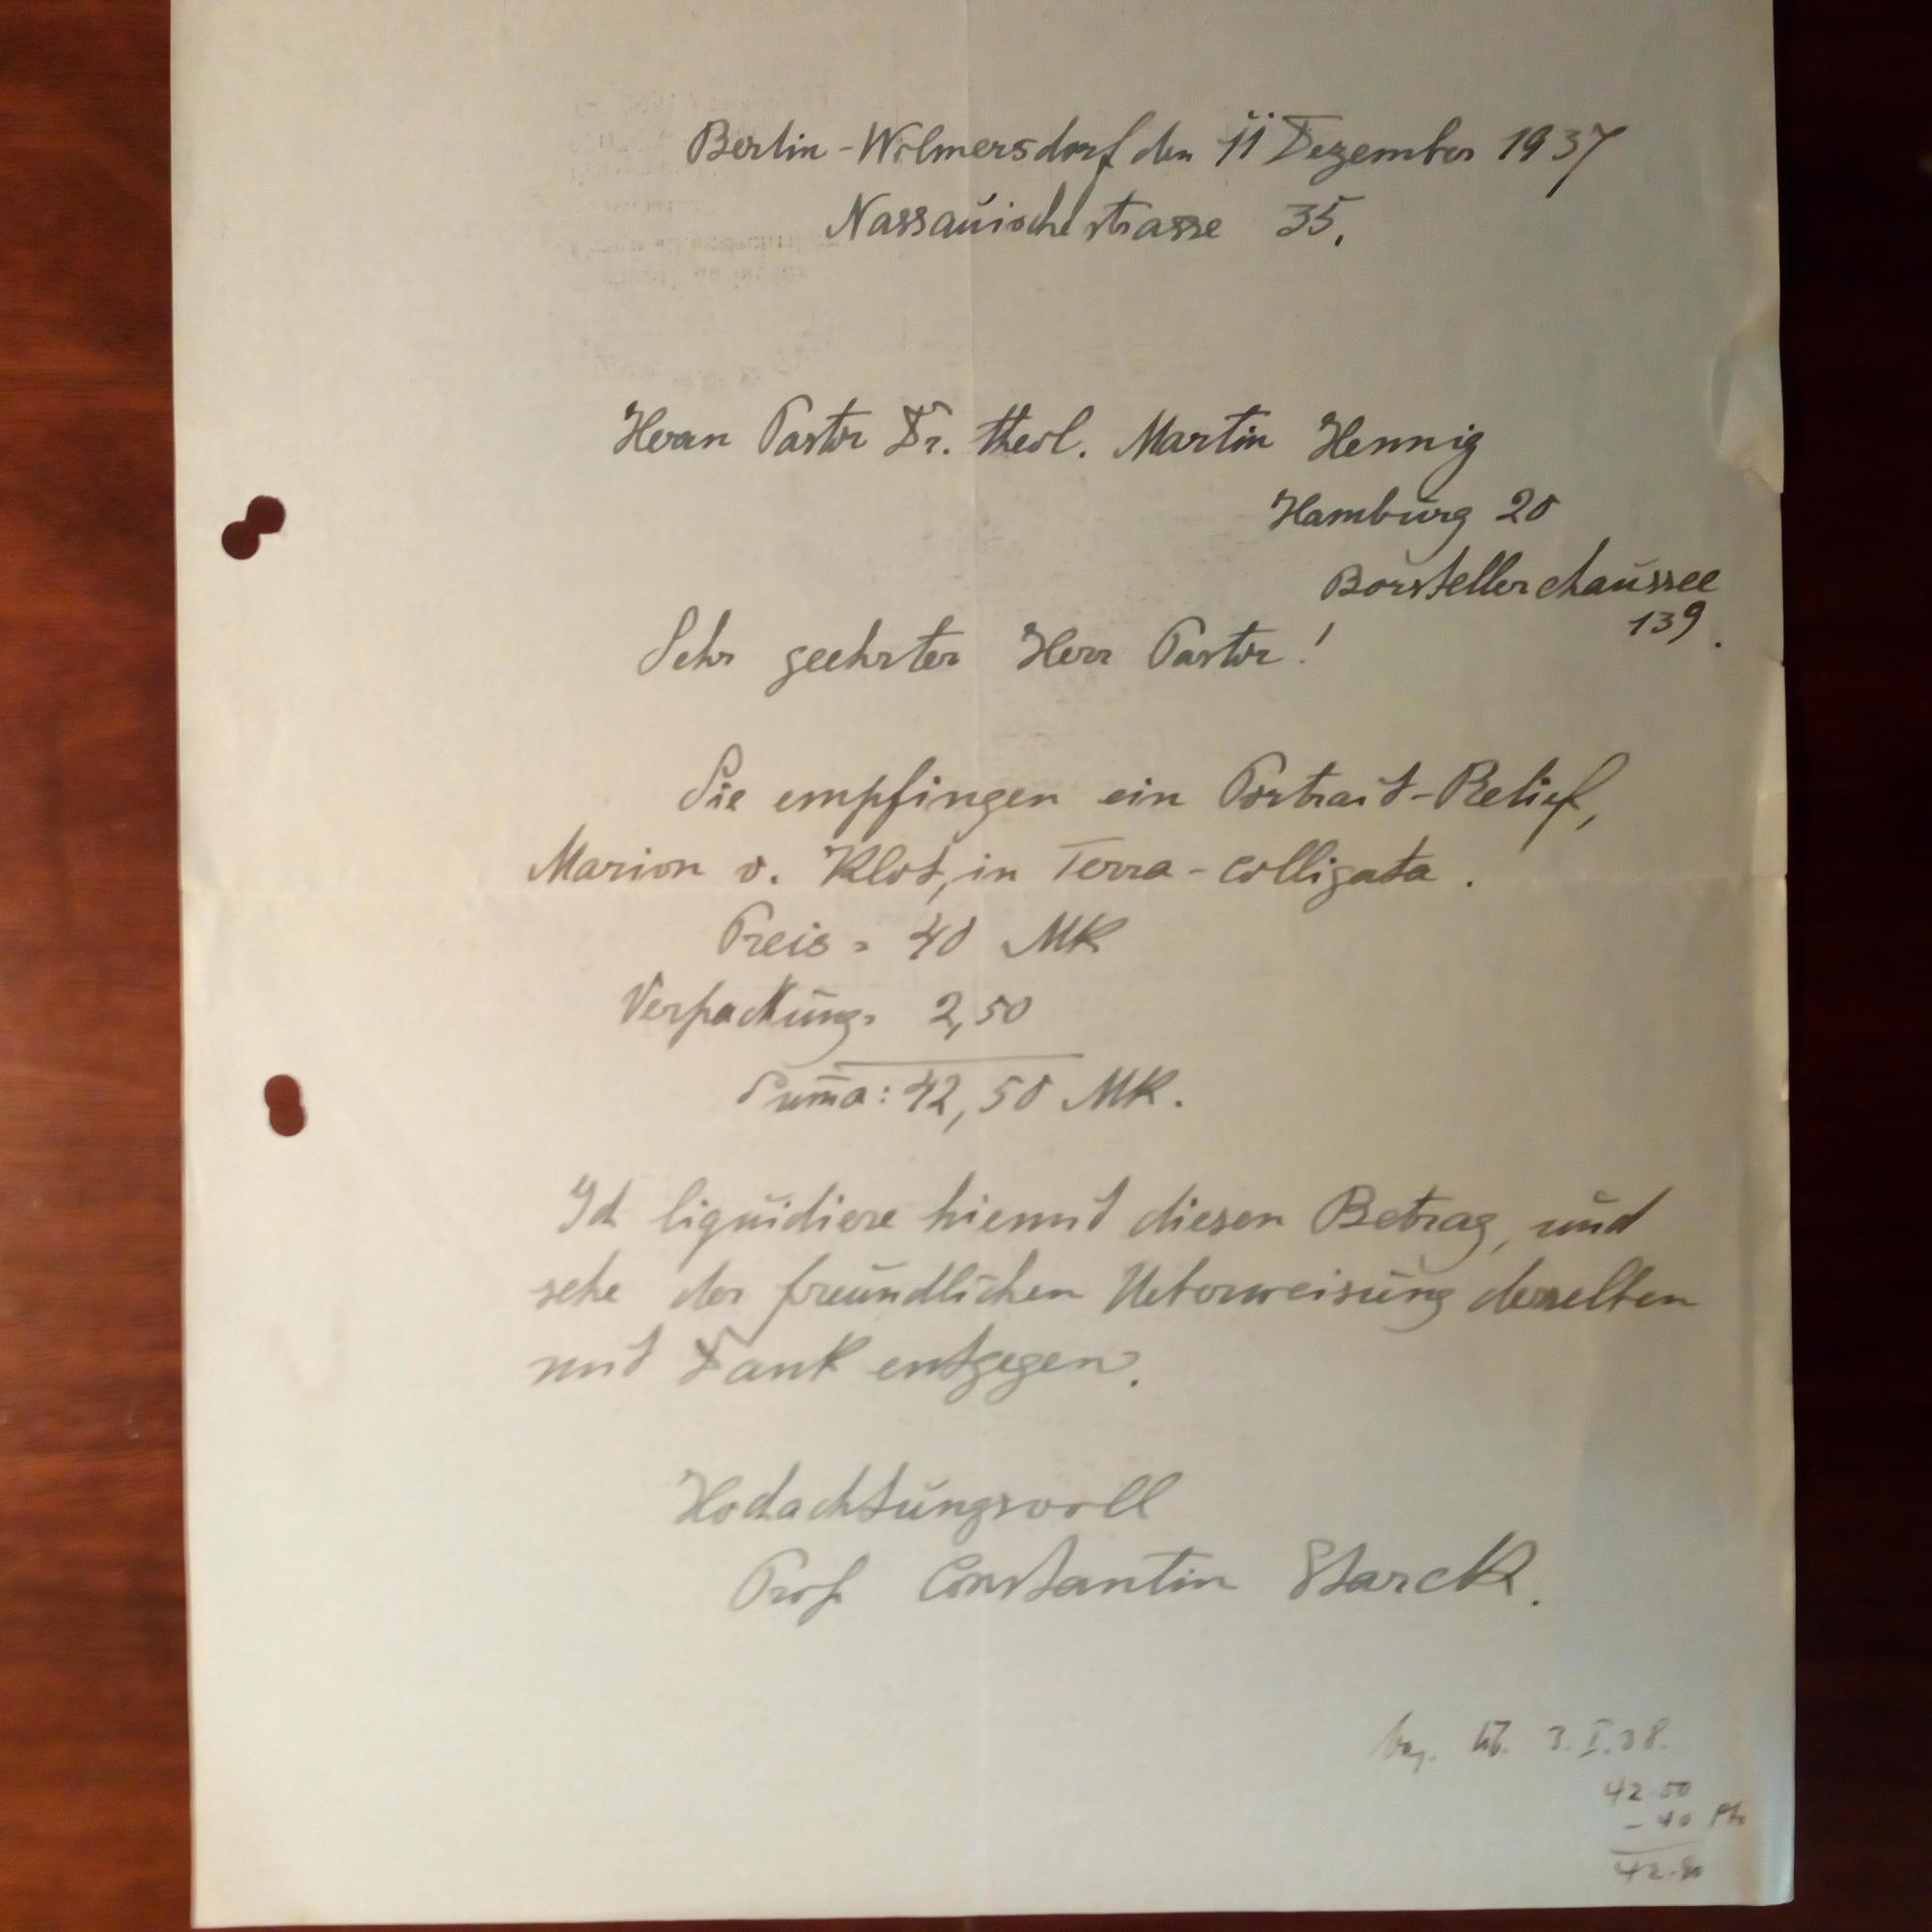 Berlin-Wilmersdorf den 11 Dezember 1937
Nassauischestrasse 35.
Herrn Pastor Dr. theol. Martin Hennig
Hamburg 20
Borstellerchaussee
139.
Sehr geehrter Herr Pastor!
Sie empfingen ein Portrait-Relief,
Marion v. Klot, in Terra-colligata.
Preis = 40 MK
Verpackung = 2,50
Sum̄a: 42,50 MK.
Ich liquidiere hiemit diesen Betrag, und
sehe der freundlichen Ueberweisung desselben
mit Dank entgegen.
Hochachtungsvoll
Prof Constantin Starck.
3. I. 38.
42.50
- 40
42.90